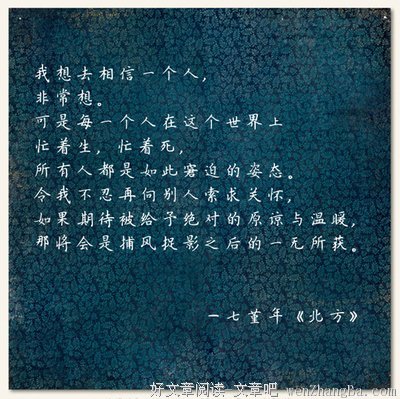 我想去相信一个人，
非常想。
可是每一个人在这个世界上
忙着生，忙着死，
所有人都是如此窘迫的姿态。
令我不忍再向别人索求关怀，
如果期待被给予绝对的原谅与温暖，
那将会是捕风捉影之后的一无所获。
一七堇年《北方》
好文章阅读 文章吧 wenZhangBa.com